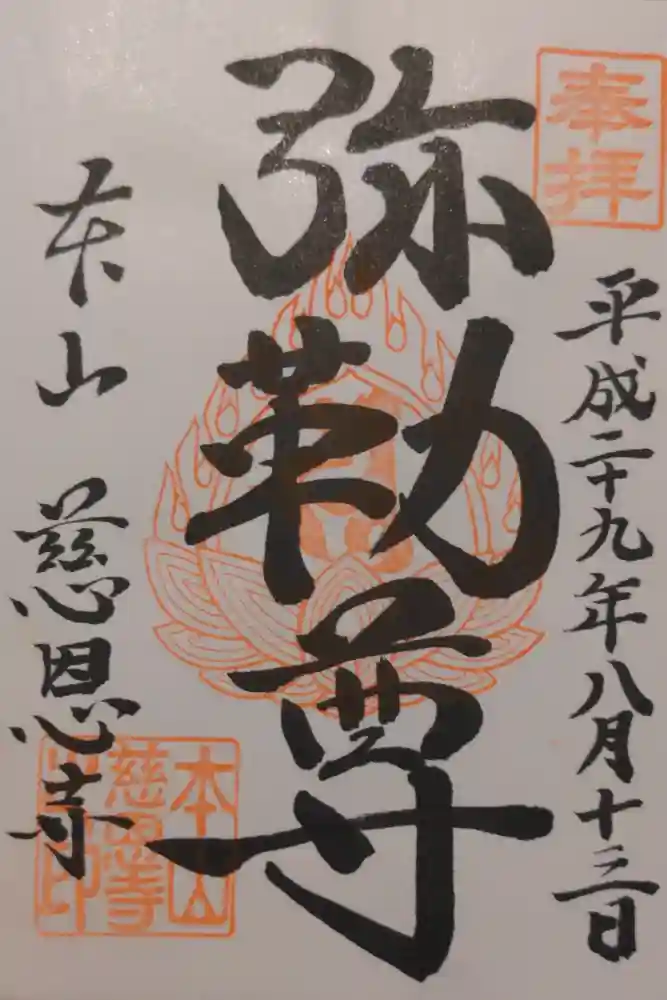 奉拝
平成二十九年八月十三日
弥勒尊
本山 慈恩寺
本山
慈恩寺
之印